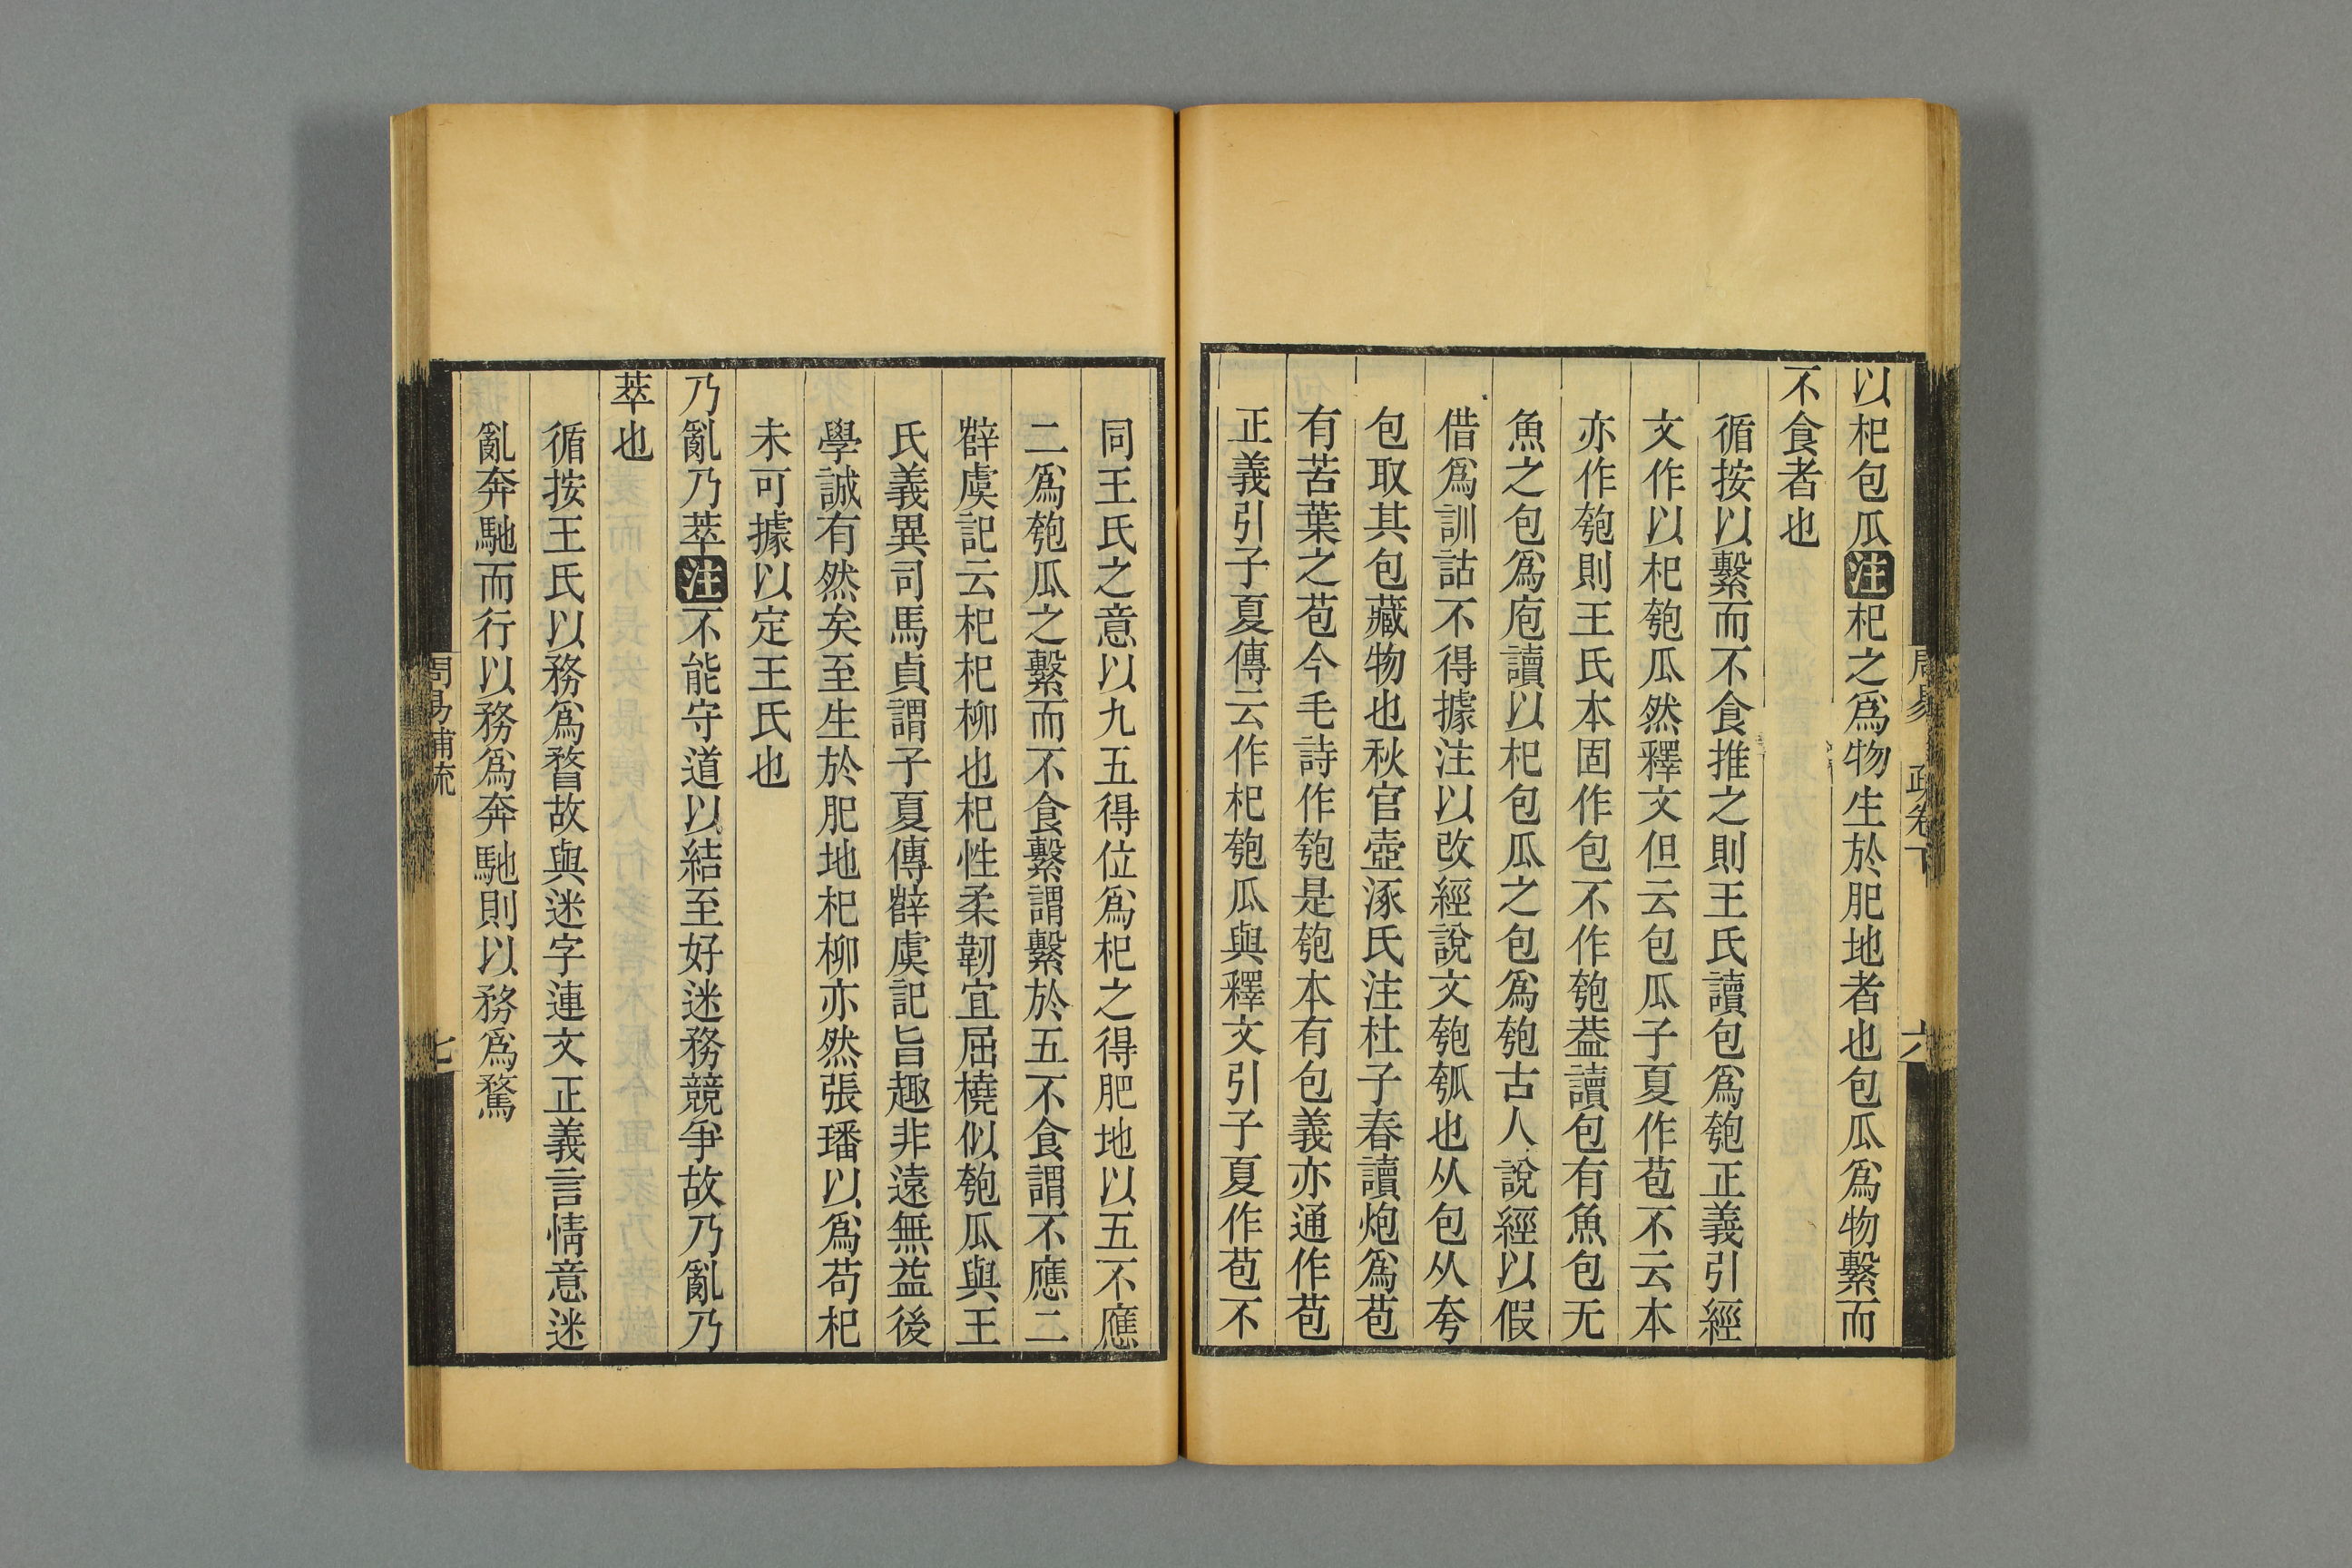 以杞包瓜注杞之爲物生於肥地者也包瓜爲物繫而
不食者也
循按以繫而不食推之則王氏讀包爲匏正義引經
文作以杞匏瓜然釋文但云包瓜子夏作苞不云本
亦作匏則王氏本固作包不作匏葢讀包有魚包无
魚之包爲庖讀以杞包瓜之包爲匏古人說經以假
借爲訓詁不得據注以改經說文匏瓠也从包从夸
包取其包藏物也秋官壺涿氏注杜子春讀炮爲苞
有苦葉之苞今毛詩作匏是匏本有包義亦通作苞
正義引子夏傳云作杞匏瓜與釋文引子夏作苞不
同王氏之意以九五得位爲杞之得肥地以五不應
二爲匏瓜之繫而不食繫謂繫於五不食謂不應二
薛虞記云杞杞柳也杞性柔韌宜屈橈似匏瓜與王
氏義異司馬貞謂子夏傳薛虞記旨趣非遠無益後
學誠有然矣至生於肥地杞柳亦然張璠以爲苟杞
未可據以定王氏也
乃亂乃萃注不能守道以結至好迷務競爭故乃亂乃
萃也
循按王氏以務爲瞀故與迷字連文正義言情意迷
亂奔馳而行以務爲奔馳則以務爲騖
周易補疏
七